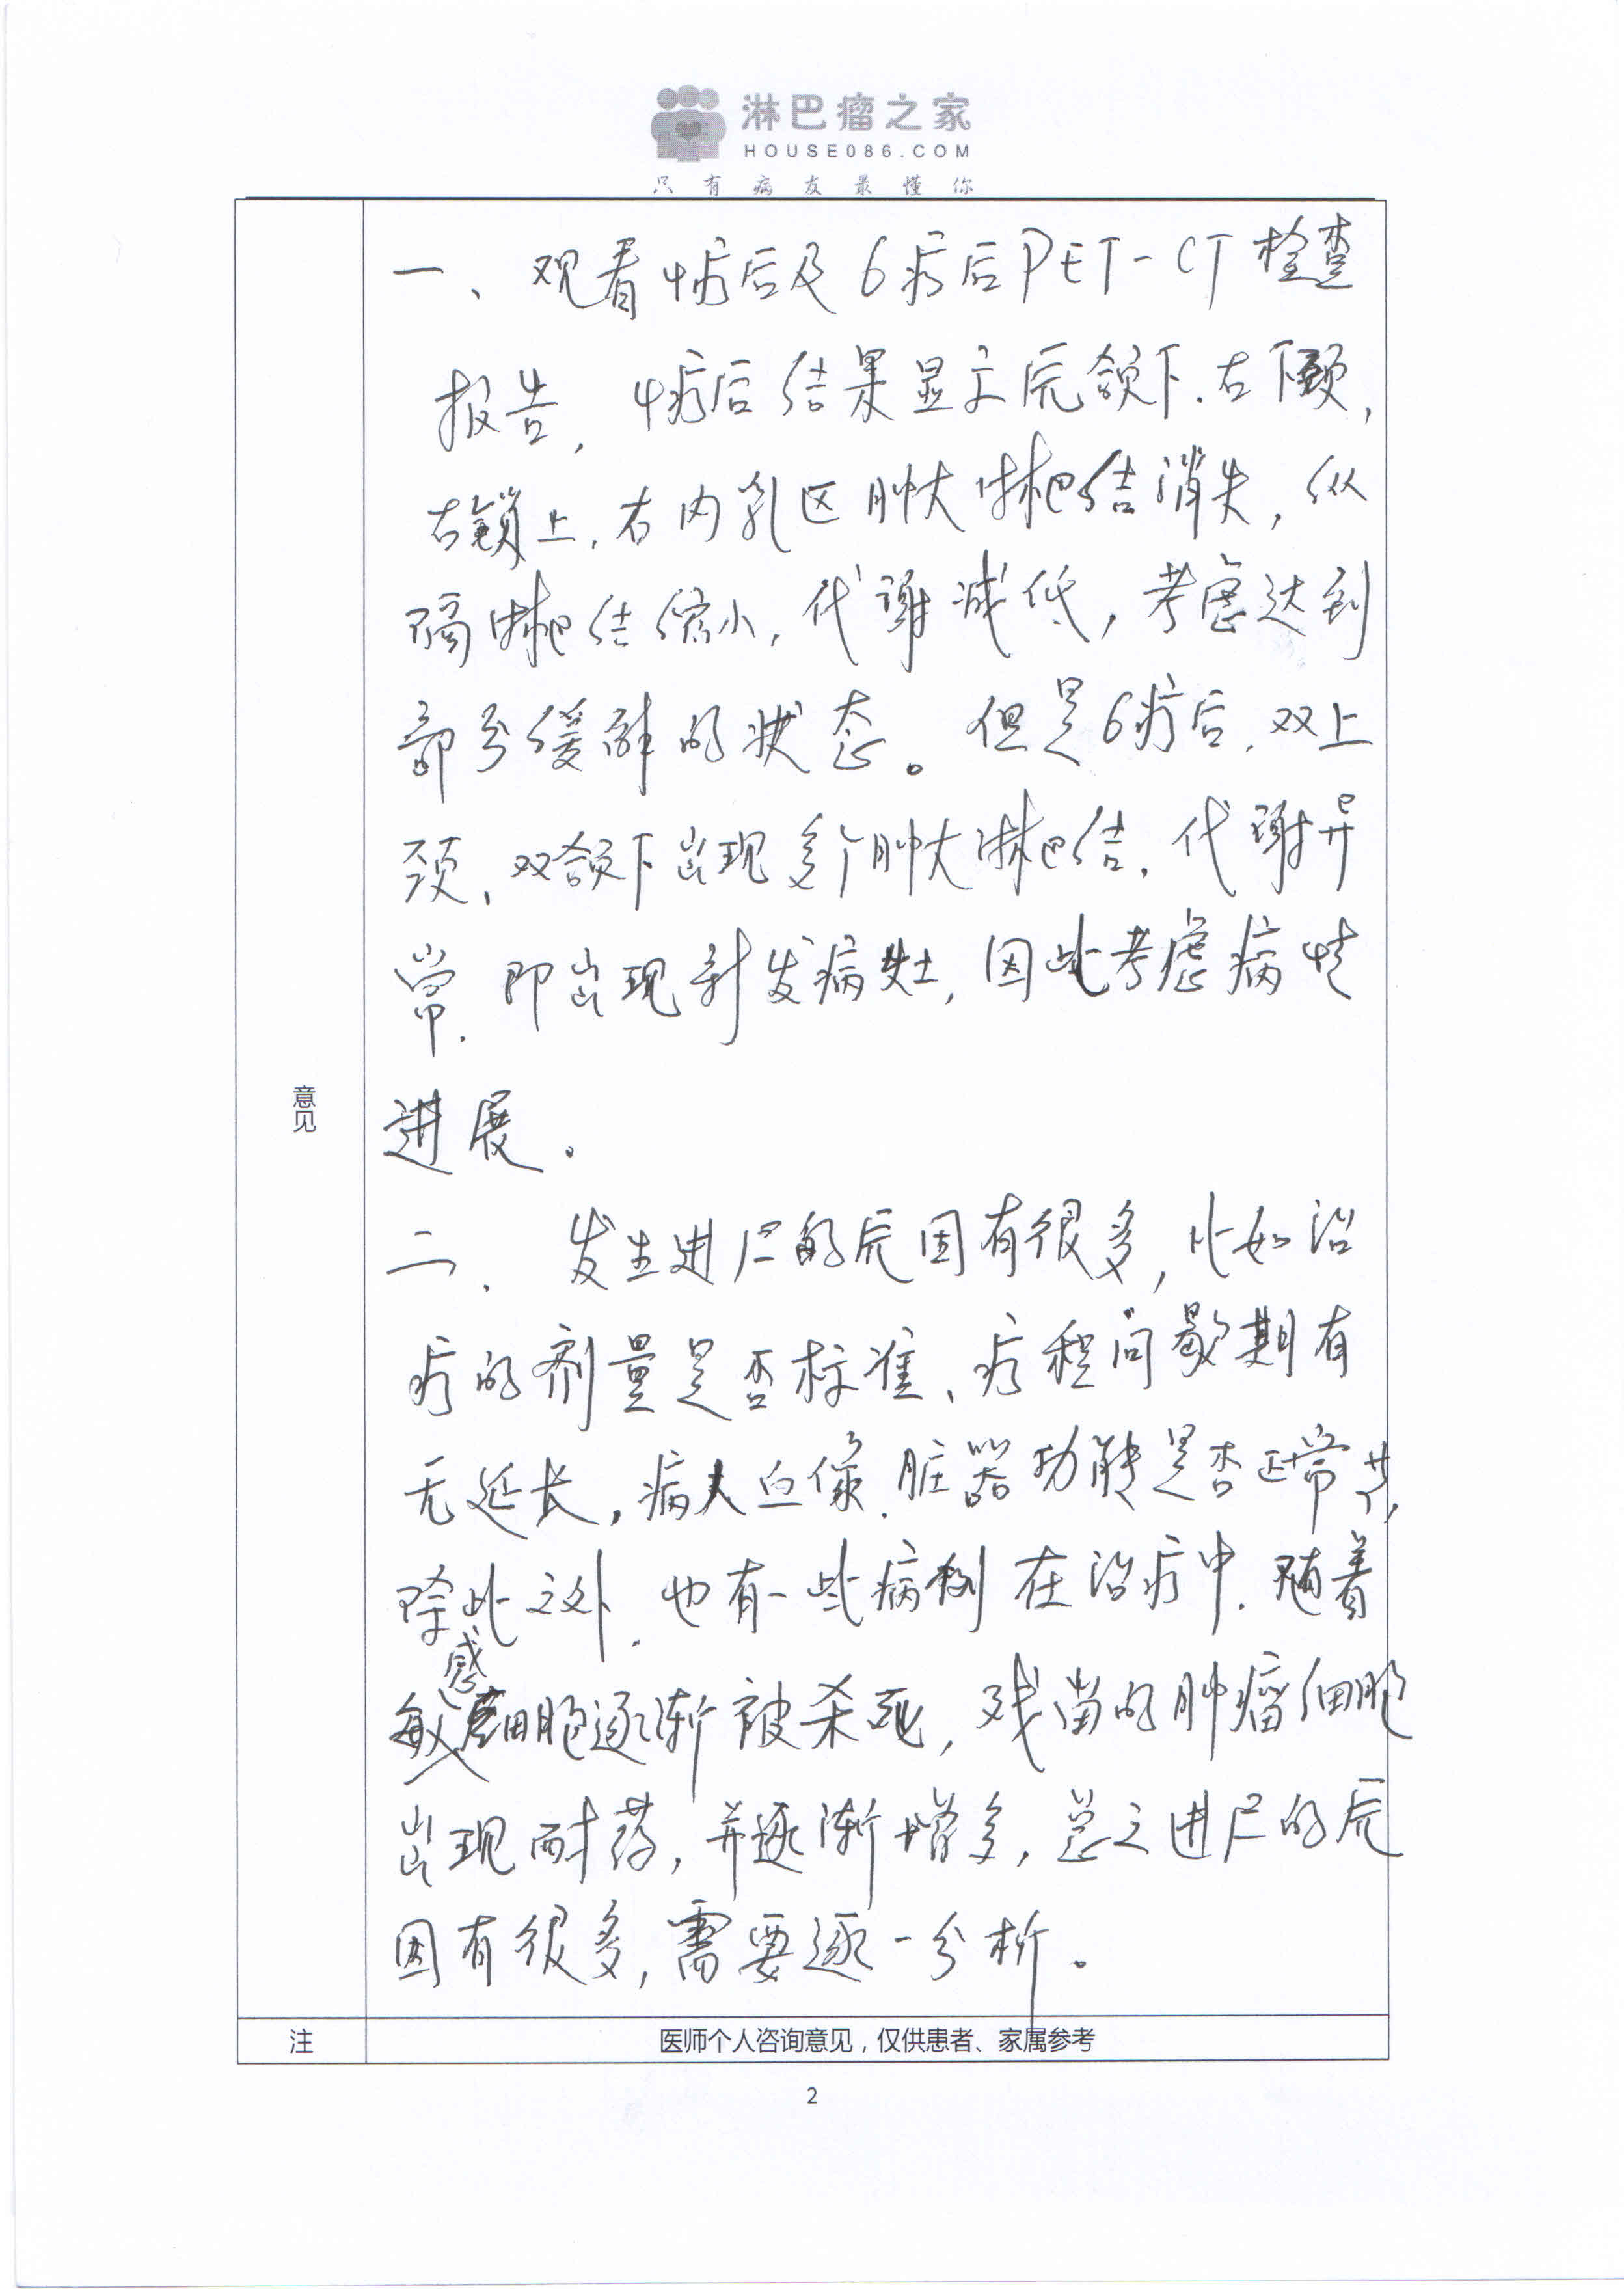 淋巴瘤之家
HOUSE086.COM
只有病友最懂你
一、观看4疗后及6疗后PET-CT检查
报告，4疗后结果显示原颌下.右下颈，
右锁上.右内乳区肿大淋巴结消失，纵
隔淋巴结缩小，代谢减低，考虑达到
部分缓解的状态。但是6疗后，双上
颈、双颌下出现多个肿大淋巴结，代谢异
常.即出现新发病灶，因此考虑病情
进展。
意见
二、发生进展的原因有很多，比如治
疗的剂量是否标准、疗程间歇期有
无延长，病人血像.脏器功能是否正常等，
除此之外.也有一些病例在治疗中.随着
敏感细胞逐渐被杀死，残留的肿瘤细胞
出现耐药，并逐渐增多，总之进展的原
因有很多，需要逐一分析。
注 医师个人咨询意见，仅供患者、家属参考
2